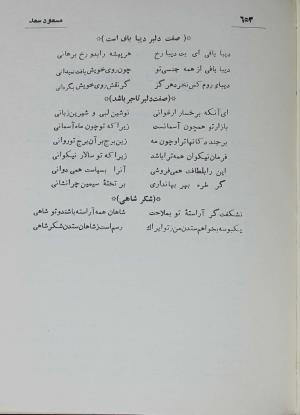 ۶۵۳ مسعود سعد
*( صفت دلبر دیبا باف است )*
دیبا بافی ای بت دیبا رخ هر پیشه را بدو رخ برهانی
دیبا بافی از همه جنسی تو چون روی خویش بافت نمیدانی
دیبای روم کس نخرد هرگز گر نقش روی خویش بگردانی
*( صفت دلبر تاجر باشد )*
ای آنکه برخسار ارغوانی نوشین لبی و شیرین زبانی
بازار تو همچون آسمانست زیرا که تو چون ماه آسمانی
بر چند دکانها تر او چون مه زین برج بر آن برج تو روانی
فرمان نیکوان همه ترا باشد زیرا که تو سالار نیکوانی
این را بلطافت همی فروشی آنرا بسیاست همی دوانی
گر طره بهر بهانداری بر تختهٔ سیمین چرا نشانی
*( شکر شاهی )*
نشکفت گر آراستهٔ تو بملاحت شاهان همه آراسته باشند و تو شاهی
یکبوسه بخواهم ستدن من ز تو ایراک رسم است ز شاهان ستدن شکر شاهی